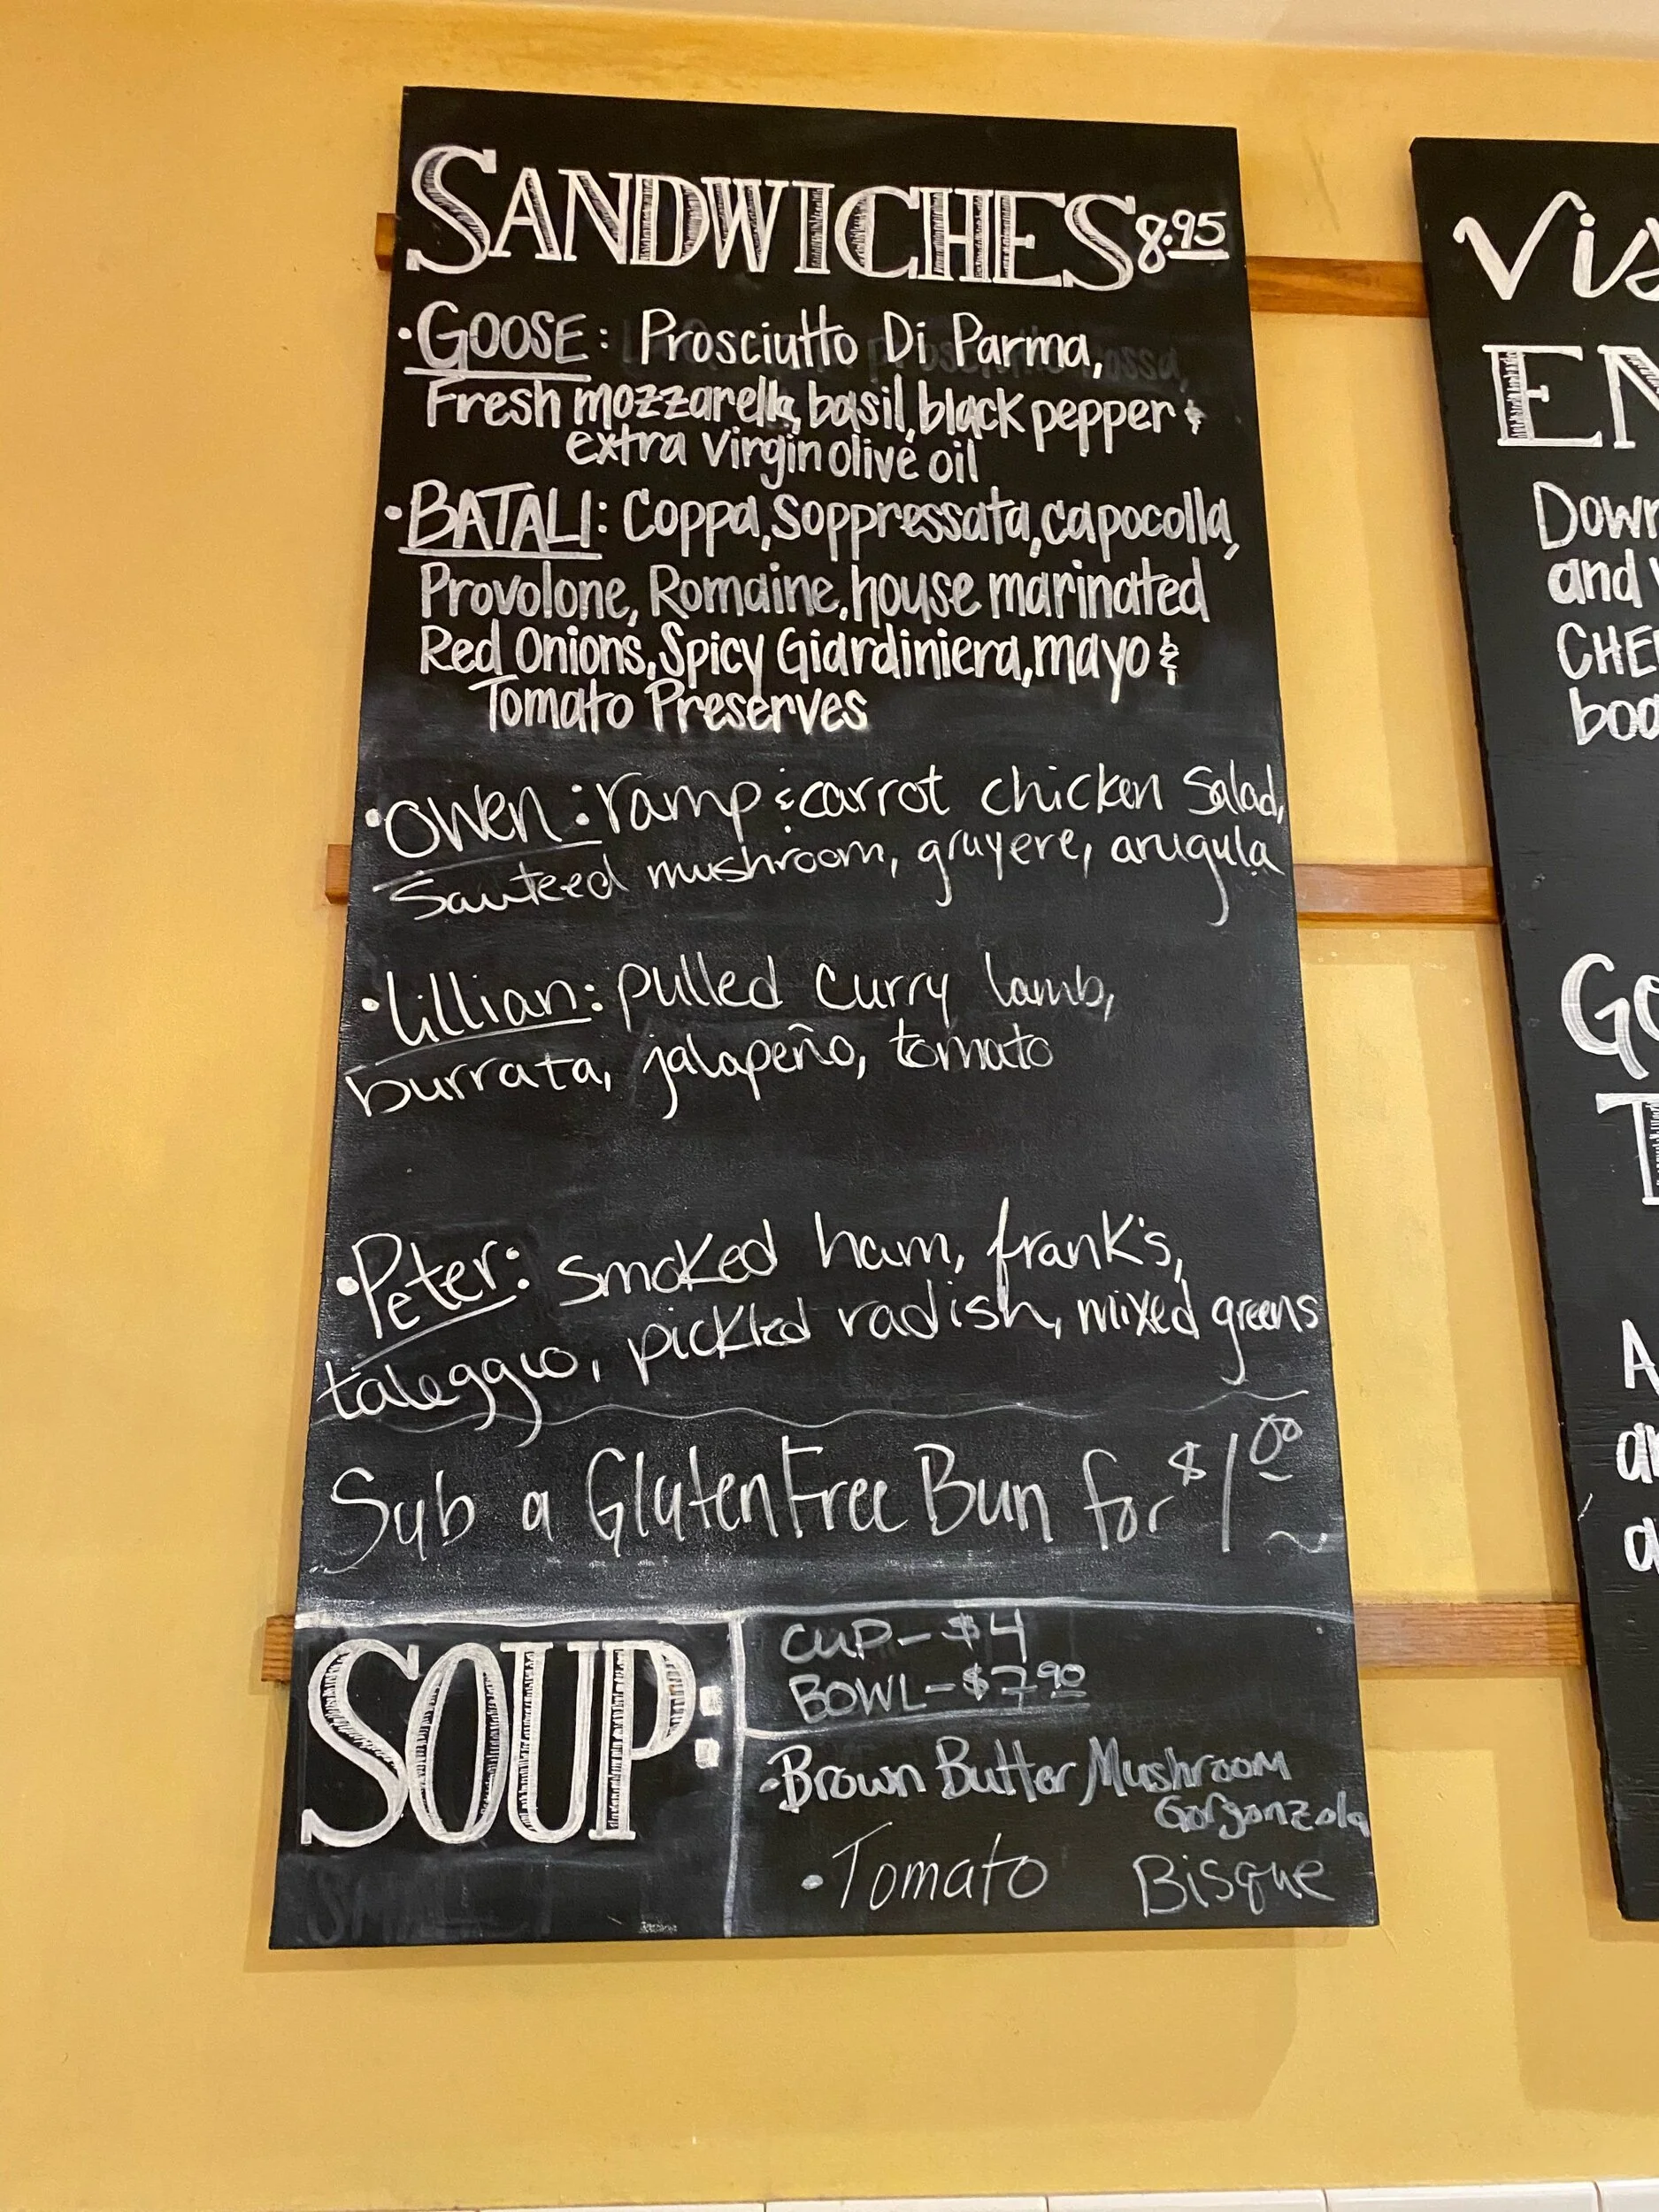 SANDWICHES 8.95
• GOOSE: Prosciutto Di Parma,
Fresh mozzarella, basil, black pepper &
extra virgin olive oil
• BATALI: Coppa, Soppressata, capocolla,
Provolone, Romaine, house marinated
Red Onions, Spicy Giardiniera, mayo &
Tomato Preserves
• Owen: ramp & carrot chicken Salad,
Sauteed mushroom, gruyere, arugula
• Lillian: pulled curry lamb,
burrata, jalapeño, tomato
• Peter: smoked ham, frank's,
taleggio, pickled radish, mixed greens
Sub a Gluten Free Bun for $1.00
SOUP:
CUP - $4
BOWL - $7.90
• Brown Butter Mushroom
Gorgonzola
• Tomato Bisque
Vis
EN
Down
and
CHE
boa
Ge
T
A
an
a